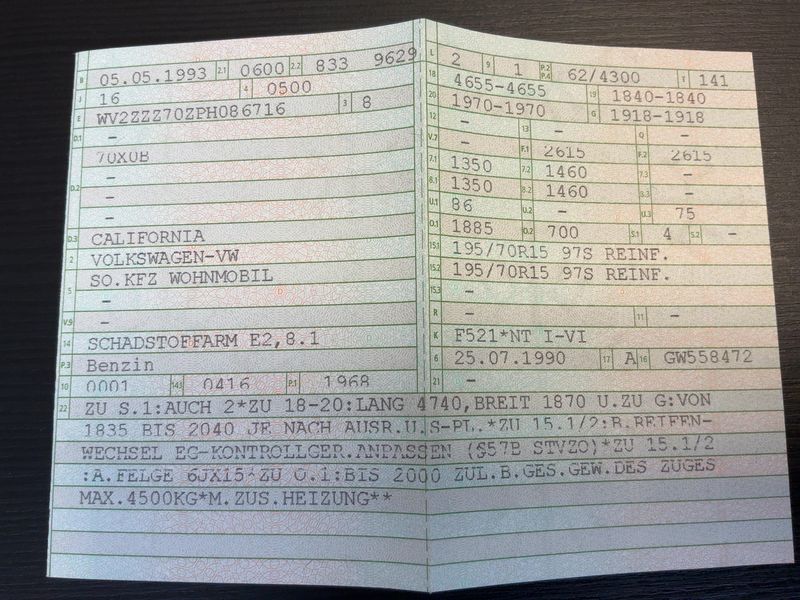 B 05.05.1993 2.1 0600 2.2 833 9629
J 16 4 0500
E WV2ZZZ70ZPH086716 3 8
D.1 –
70X0B
D.2 –
–
–
D.3 CALIFORNIA
2 VOLKSWAGEN-VW
5 SO.KFZ WOHNMOBIL
–
V.9 –
14 SCHADSTOFFARM E2,8.1
P.3 Benzin
10 0001 14.1 0416 P.1 1968
L 2 9 1 P.2 P.4 62/4300 T 141
18 4655-4655 19 1840-1840
20 1970-1970 G 1918-1918
12 – 13 – Q –
V.7 – F.1 2615 F.2 2615
7.1 1350 7.2 1460 7.3 –
8.1 1350 8.2 1460 8.3 –
U.1 86 U.2 – U.3 75
O.1 1885 O.2 700 S.1 4 S.2 –
15.1 195/70R15 97S REINF.
15.2 195/70R15 97S REINF.
15.3 –
R – 11 –
K F521*NT I-VI
6 25.07.1990 17 A 16 GW558472
21 –
22 ZU S.1:AUCH 2*ZU 18-20:LANG 4740,BREIT 1870 U.ZU G:VON
1835 BIS 2040 JE NACH AUSR.U.S-PL.*ZU 15.1/2:B.REIFEN-
WECHSEL EG-KONTROLLGER.ANPASSEN (§57B STVZO)*ZU 15.1/2
:A.FELGE 6JX15*ZU O.1:BIS 2000 ZUL.B.GES.GEW.DES ZUGES
MAX.4500KG*M.ZUS.HEIZUNG**